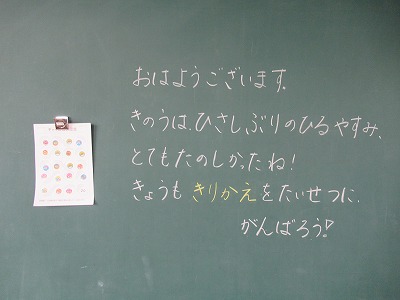 おはようございます。
きのうは、ひさしぶりのひるやすみ、
とてもたのしかったね!
きょうも きりかえをたいせつに、
がんばろう!